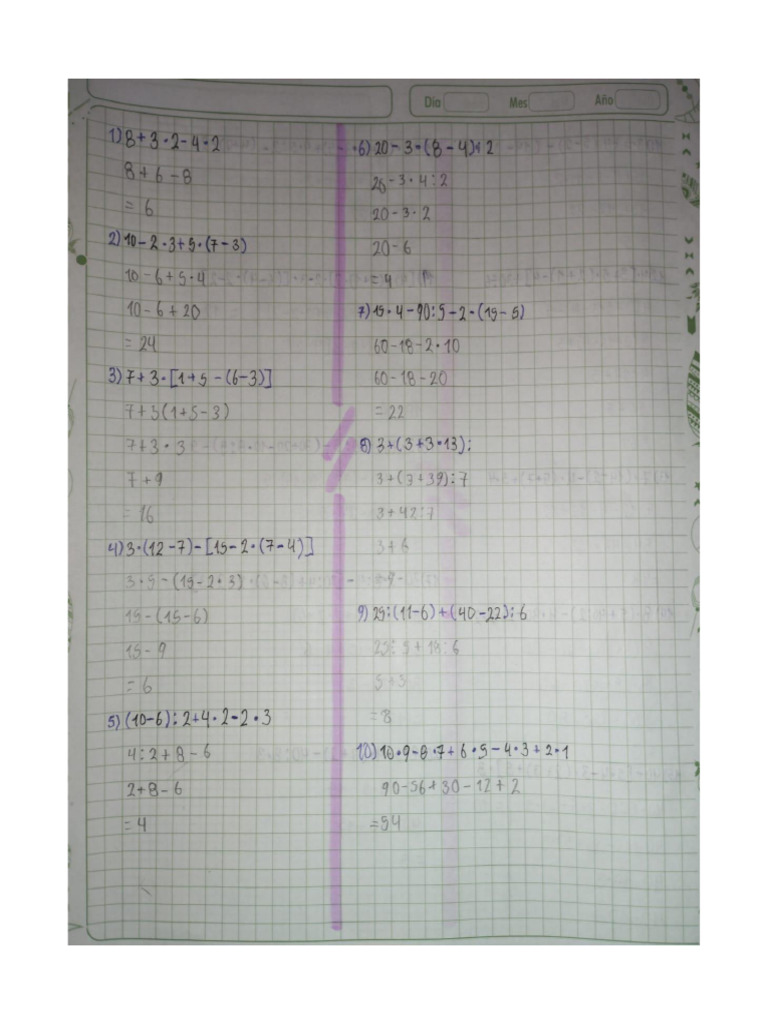 Día Mes Año
1) 8 + 3 · 2 - 4 · 2
8 + 6 - 8
= 6
2) 10 - 2 · 3 + 5 · (7 - 3)
10 - 6 + 5 · 4
10 - 6 + 20
= 24
3) 7 + 3 · [1 + 5 - (6 - 3)]
7 + 3 (1 + 5 - 3)
7 + 3 · 3
7 + 9
= 16
4) 3 · (12 - 7) - [15 - 2 · (7 - 4)]
3 · 5 - (15 - 2 · 3)
15 - (15 - 6)
15 - 9
= 6
5) (10 - 6) : 2 + 4 · 2 - 2 · 3
4 : 2 + 8 - 6
2 + 8 - 6
= 4
6) 20 - 3 · (8 - 4) : 2
20 - 3 · 4 : 2
20 - 3 · 2
20 - 6
= 4
7) 15 · 4 - 90 : 5 - 2 · (15 - 5)
60 - 18 - 2 · 10
60 - 18 - 20
= 22
8) 3 + (3 + 3 · 13) :
3 + (3 + 39) : 7
3 + 42 : 7
3 + 6
= 9
9) 25 : (11 - 6) + (40 - 22) : 6
25 : 5 + 18 : 6
5 + 3
= 8
10) 10 · 9 - 8 · 7 + 6 · 5 - 4 · 3 + 2 · 1
90 - 56 + 30 - 12 + 2
= 54